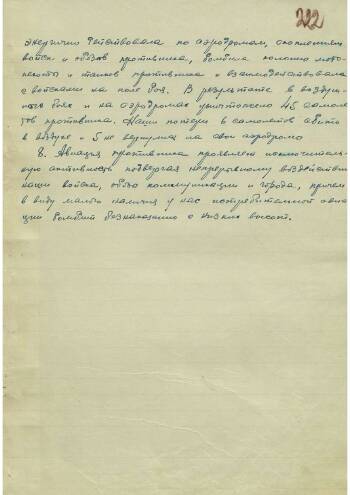 222
энергично действовала по аэродромам, скоплениям
войск и обозов противника, бомбила колонны мото-
пехоты и танков противника и взаимодействовала
с войсками на поле боя. В результате в воздуш-
ных боях и на аэродромах уничтожено 45 самоле-
тов противника. Наши потери 2 самолетов сбито
в воздухе и 5 не вернулись на свои аэродромы
8. Авиация противника проявляет исключитель-
ную активность подвергая непрерывному воздействию
наши войска, обозы коммуникации и города, причем
в виду малого наличия у нас истребительной авиа-
ции бомбит безнаказанно с низких высот.